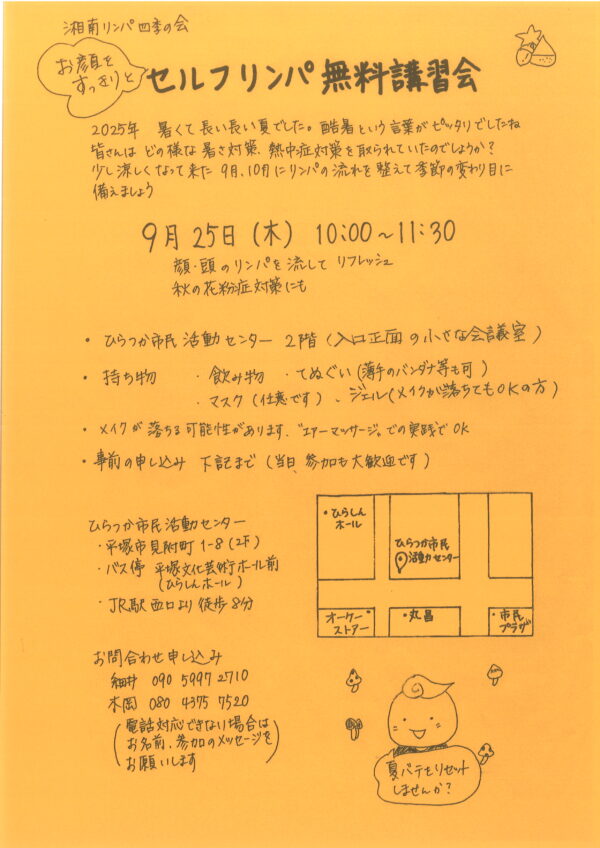 湘南リンパ四季の会
お顔を
すっきりと
セルフリンパ無料講習会
2025年 暑くて長い長い夏でした。酷暑という言葉がピッタリでしたね
皆さんは どの様な暑さ対策、熱中症対策を取られていたのでしょうか?
少し涼しくなって来た 9月、10月にリンパの流れを整えて季節の変わり目に
備えましょう
9月25日(木) 10:00~11:30
顔・頭のリンパを流して リフレッシュ
秋の花粉症対策にも
・ひらつか市民活動センター 2階(入口正面の小さな会議室)
・持ち物 ・飲み物 ・てぬぐい(薄手のバンダナ等も可)
・マスク(任意です)、ジェル(メイクが落ちてもOKの方)
・メイクが落ちる可能性があります、"エアーマッサージ"での実践でOK
・事前の申し込み 下記まで(当日、参加も大歓迎です)
ひらつか市民活動センター
・平塚市見附町1-8(2F)
・バス停 平塚文化芸術ホール前
(ひらしんホール)
・JR駅西口より徒歩8分
・ひらしん
ホール
ひらつか市民
活動センター
オーケー
ストアー
・丸昌
・市民
プラザ
お問合わせ申し込み
細井 090 5997 2710
木岡 080 4375 7520
(電話対応できない場合は
お名前、参加のメッセージを
お願いします)
夏バテをリセット
しませんか?